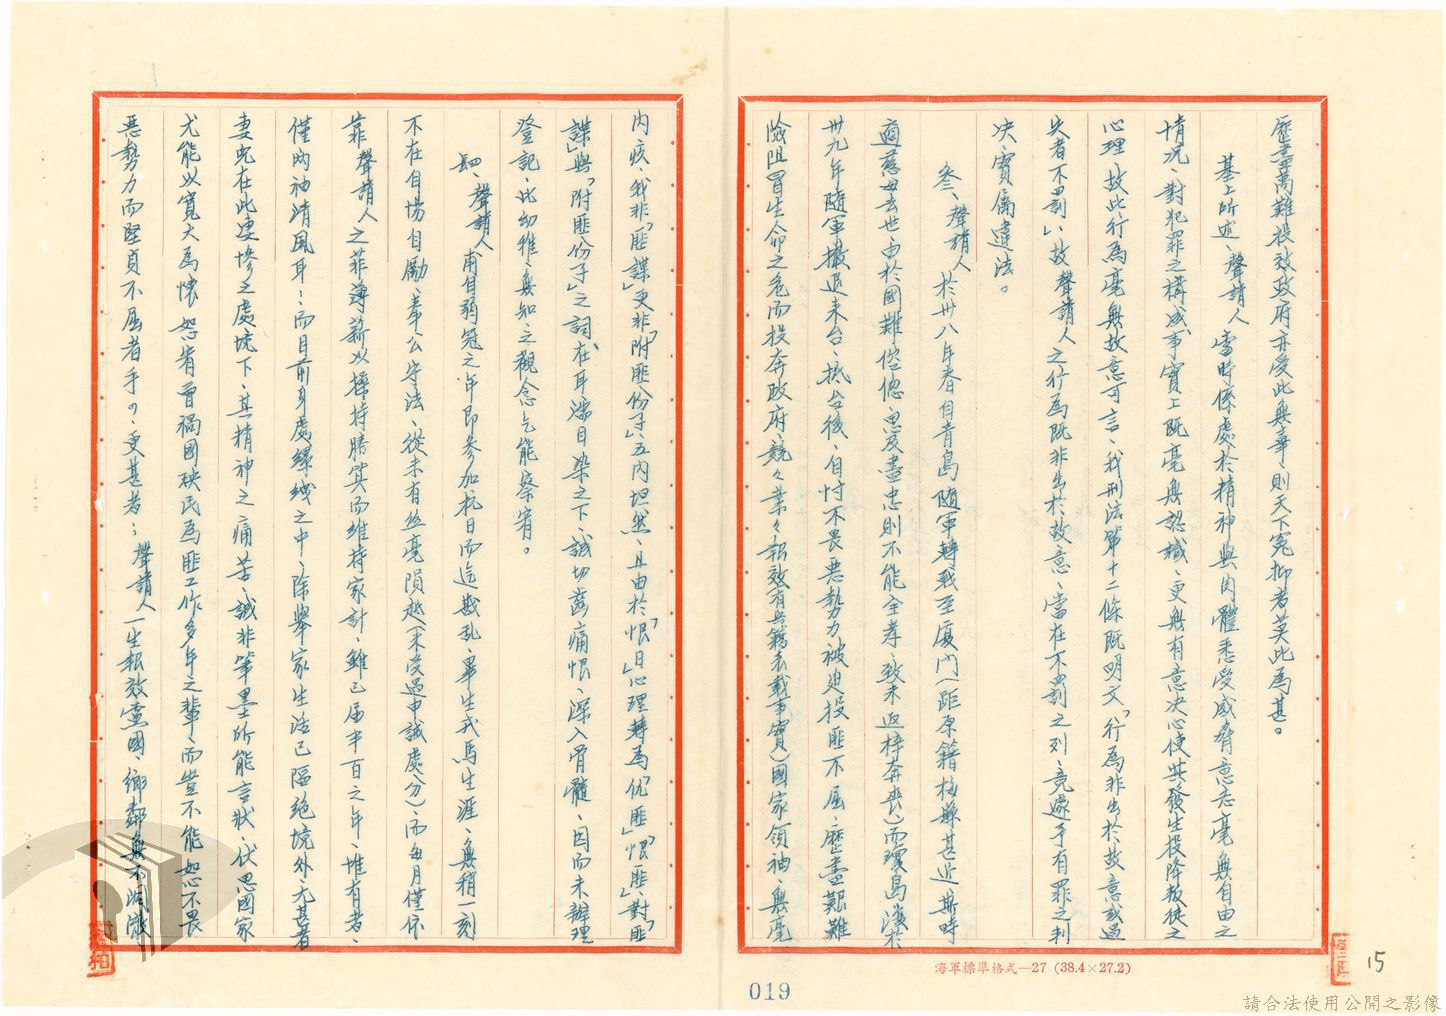 歷盡萬難投效政府亦受此無辜、則天下冤抑者莫此為甚。
基上所述、聲請人當時係處於精神與肉體悉受威脅意志毫無自由之
情況、對犯罪之構成事實上既毫無認識、更無有意決心使其發生投降叛徒之
心理、故此行為毫無故意可言、我刑法第十二條既明文「行為非出於故意或過
失者不罰」、故聲請人之行為既非出於故意、當在不罰之列、竟遽予有罪之判
決、實屬違法。
叄、聲請人於卅八年春自青島隨軍轉戰至廈門(距原籍梅縣甚近、斯時
適慈母去世、由於國難倥傯、思及盡忠則不能全孝、致未返梓奔喪)而瓊島淡於
卅九年隨軍撤退來台、抵台後、自忖不畏惡勢力被迫投匪不屈、歷盡艱難
險阻冒生命之危而投奔政府、兢々業々、報效有兵籍表載事實)國家領袖、無毫
內疚、我非「匪諜」更非「附匪份子」、五內坦然、且由於「恨日」心理轉為「仇匪」「恨匪」、對「匪
諜」與「附匪份子」之詞、在耳濡目染之下、誠切齒痛恨、深入骨髓、因而未辦理
登記、此幼稚無知之觀念乞能察宥。
肆、聲請人甫自弱冠之年即參加抗日而迄戡亂、畢生戎馬生涯、無稍一刻
不在自惕自勵、奉公守法、從未有絲毫隕越(未受過申誡處分)、而每月僅依
靠聲請人之菲薄薪以撙持勝算而維持家計、雖已屆半百之年、惟有者、
僅兩袖清風耳！而目前身處縲絏之中、除舉家生活已陷絕境外、尤甚者
妻兒在此淒慘之處境下、其精神之痛苦、誠非筆墨所能言狀、伏思國家
尤能以寬大為懷、恕宥曾禍國殃民為匪工作多年之輩、而豈不能恕不畏
惡勢力而堅貞不屈者乎？、更甚者：聲請人一生報效黨國、鄉鄰無不
海軍標準格式—27 (38.4×27.2)
019
15
請合法使用公開之影像